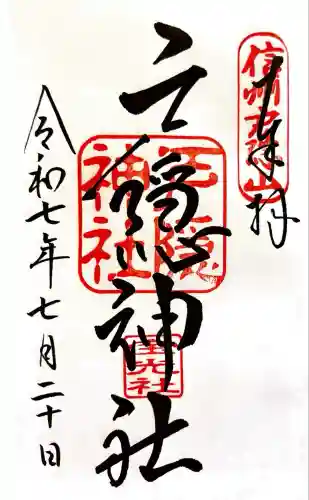 信州戸隠山
奉拝
戸隠神社
戸隠
神社
宝光社
令和七年七月二十日